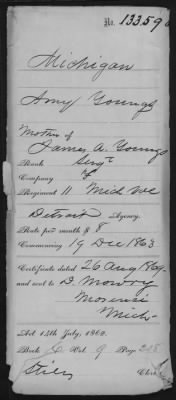 No. 13359
Michigan
Amy Youngs
Mother of
James A. Youngs
Rank Sergt
Company F
Regiment 11 Mich Vol
Detroit Agency.
Rate per month $ 8
Commencing 19 Dec 1863
Certificate dated 26 Aug 1869
and sent to D. Mowry
Mich
Act 14th July, 1862.
Book Vol 9 Page
Clerk